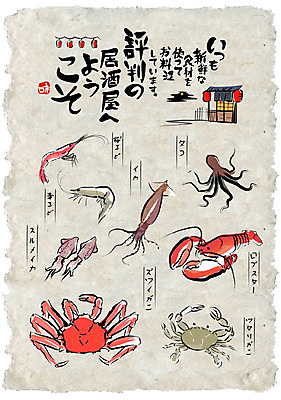 いつも
新鮮な
食材を
使って
お料理
しています。
評判の
居酒屋へ
ようこそ
桜えび
タコ
イカ
スルメイカ
ロブスター
ズワイガニ
ワタリガニ